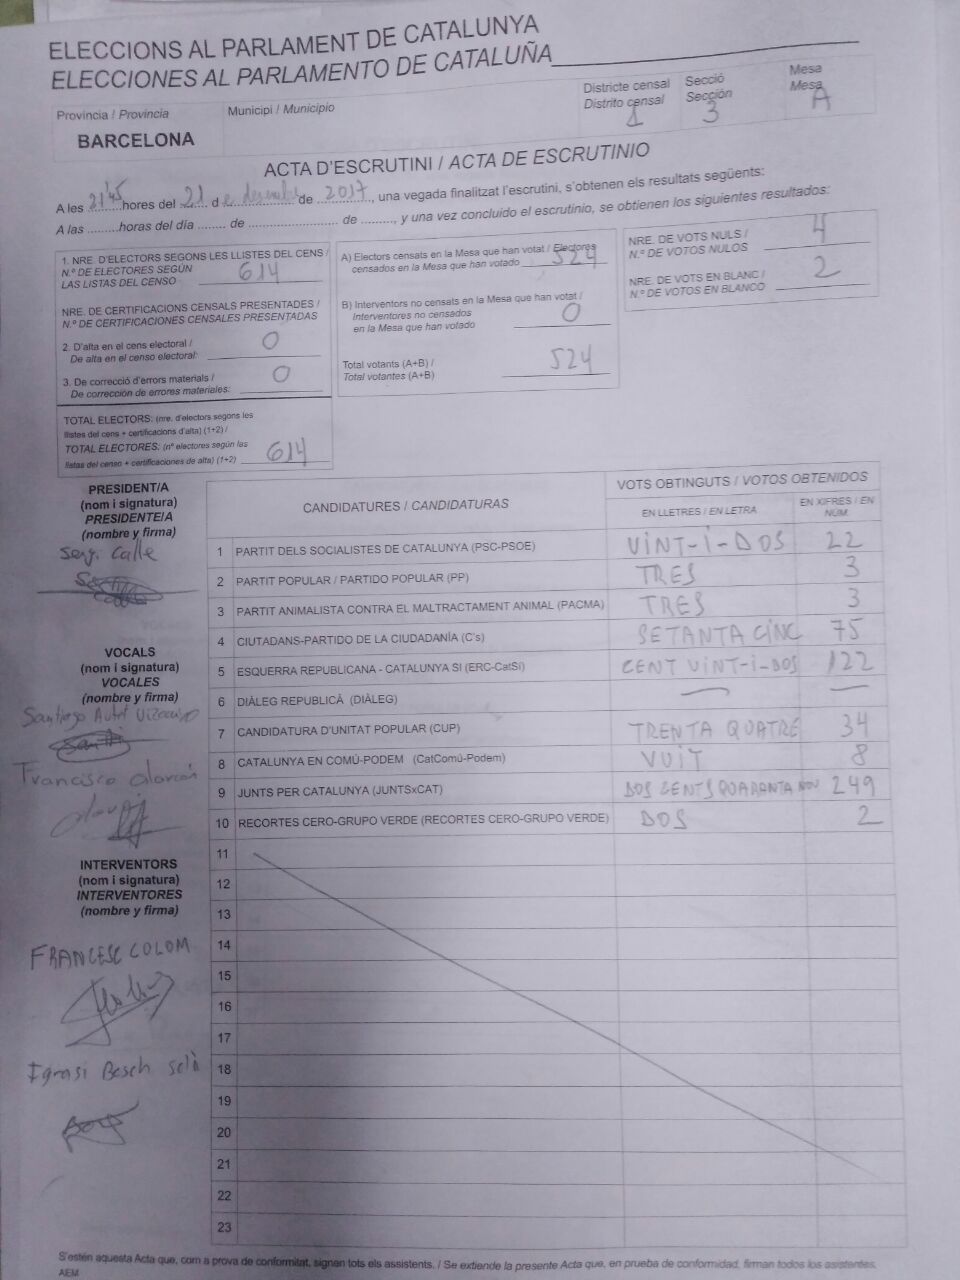 ELECCIONS AL PARLAMENT DE CATALUNYA
ELECCIONES AL PARLAMENTO DE CATALUÑA
Província / Provincia
BARCELONA
Municipi / Municipio
Districte censal
Distrito censal
1
Secció
Sección
3
Mesa
Mesa
A
ACTA D'ESCRUTINI / ACTA DE ESCRUTINIO
A les 21'45 hores del 21 d e desembre de 2017, una vegada finalitzat l'escrutini, s'obtenen els resultats següents:
A las ......... horas del día ........ de ........................ de ........., y una vez concluido el escrutinio, se obtienen los siguientes resultados:
1. NRE. D'ELECTORS SEGONS LES LLISTES DEL CENS /
N.º DE ELECTORES SEGÚN
LAS LISTAS DEL CENSO 614
NRE. DE CERTIFICACIONS CENSALS PRESENTADES /
N.º DE CERTIFICACIONES CENSALES PRESENTADAS
2. D'alta en el cens electoral /
De alta en el censo electoral: 0
3. De correcció d'errors materials /
De corrección de errores materiales: 0
TOTAL ELECTORS: (nre. d'electors segons les
llistes del cens + certificacions d'alta) (1+2) /
TOTAL ELECTORES: (nº electores según las
listas del censo + certificaciones de alta) (1+2) 614
A) Electors censats en la Mesa que han votat / Electores
censados en la Mesa que han votado 524
B) Interventors no censats en la Mesa que han votat /
Interventores no censados
en la Mesa que han votado 0
Total votants (A+B) /
Total votantes (A+B) 524
NRE. DE VOTS NULS /
N.º DE VOTOS NULOS 4
NRE. DE VOTS EN BLANC /
N.º DE VOTOS EN BLANCO 2
PRESIDENT/A
(nom i signatura)
PRESIDENTE/A
(nombre y firma)
Sergi Calle
VOCALS
(nom i signatura)
VOCALES
(nombre y firma)
Santiago
Francisco Alarcón
INTERVENTORS
(nom i signatura)
INTERVENTORES
(nombre y firma)
FRANCESC COLOM
Ignasi Bosch Solà
CANDIDATURES / CANDIDATURAS
VOTS OBTINGUTS / VOTOS OBTENIDOS
EN LLETRES / EN LETRA
EN XIFRES / EN NÚM.
1 PARTIT DELS SOCIALISTES DE CATALUNYA (PSC-PSOE) VINT-I-DOS 22
2 PARTIT POPULAR / PARTIDO POPULAR (PP) TRES 3
3 PARTIT ANIMALISTA CONTRA EL MALTRACTAMENT ANIMAL (PACMA) TRES 3
4 CIUTADANS-PARTIDO DE LA CIUDADANÍA (C's) SETANTA CINC 75
5 ESQUERRA REPUBLICANA - CATALUNYA SI (ERC-CatSí) CENT VINT-I-DOS 122
6 DIÀLEG REPUBLICÀ (DIÀLEG) — —
7 CANDIDATURA D'UNITAT POPULAR (CUP) TRENTA QUATRE 34
8 CATALUNYA EN COMÚ-PODEM (CatComú-Podem) VUIT 8
9 JUNTS PER CATALUNYA (JUNTSxCAT) DOS CENTS QUARANTA NOU 249
10 RECORTES CERO-GRUPO VERDE (RECORTES CERO-GRUPO VERDE) DOS 2
11
12
13
14
15
16
17
18
19
20
21
22
23
S'estén aquesta Acta que, com a prova de conformitat, signen tots els assistents. / Se extiende la presente Acta que, en prueba de conformidad, firman todos los asistentes.
AEM